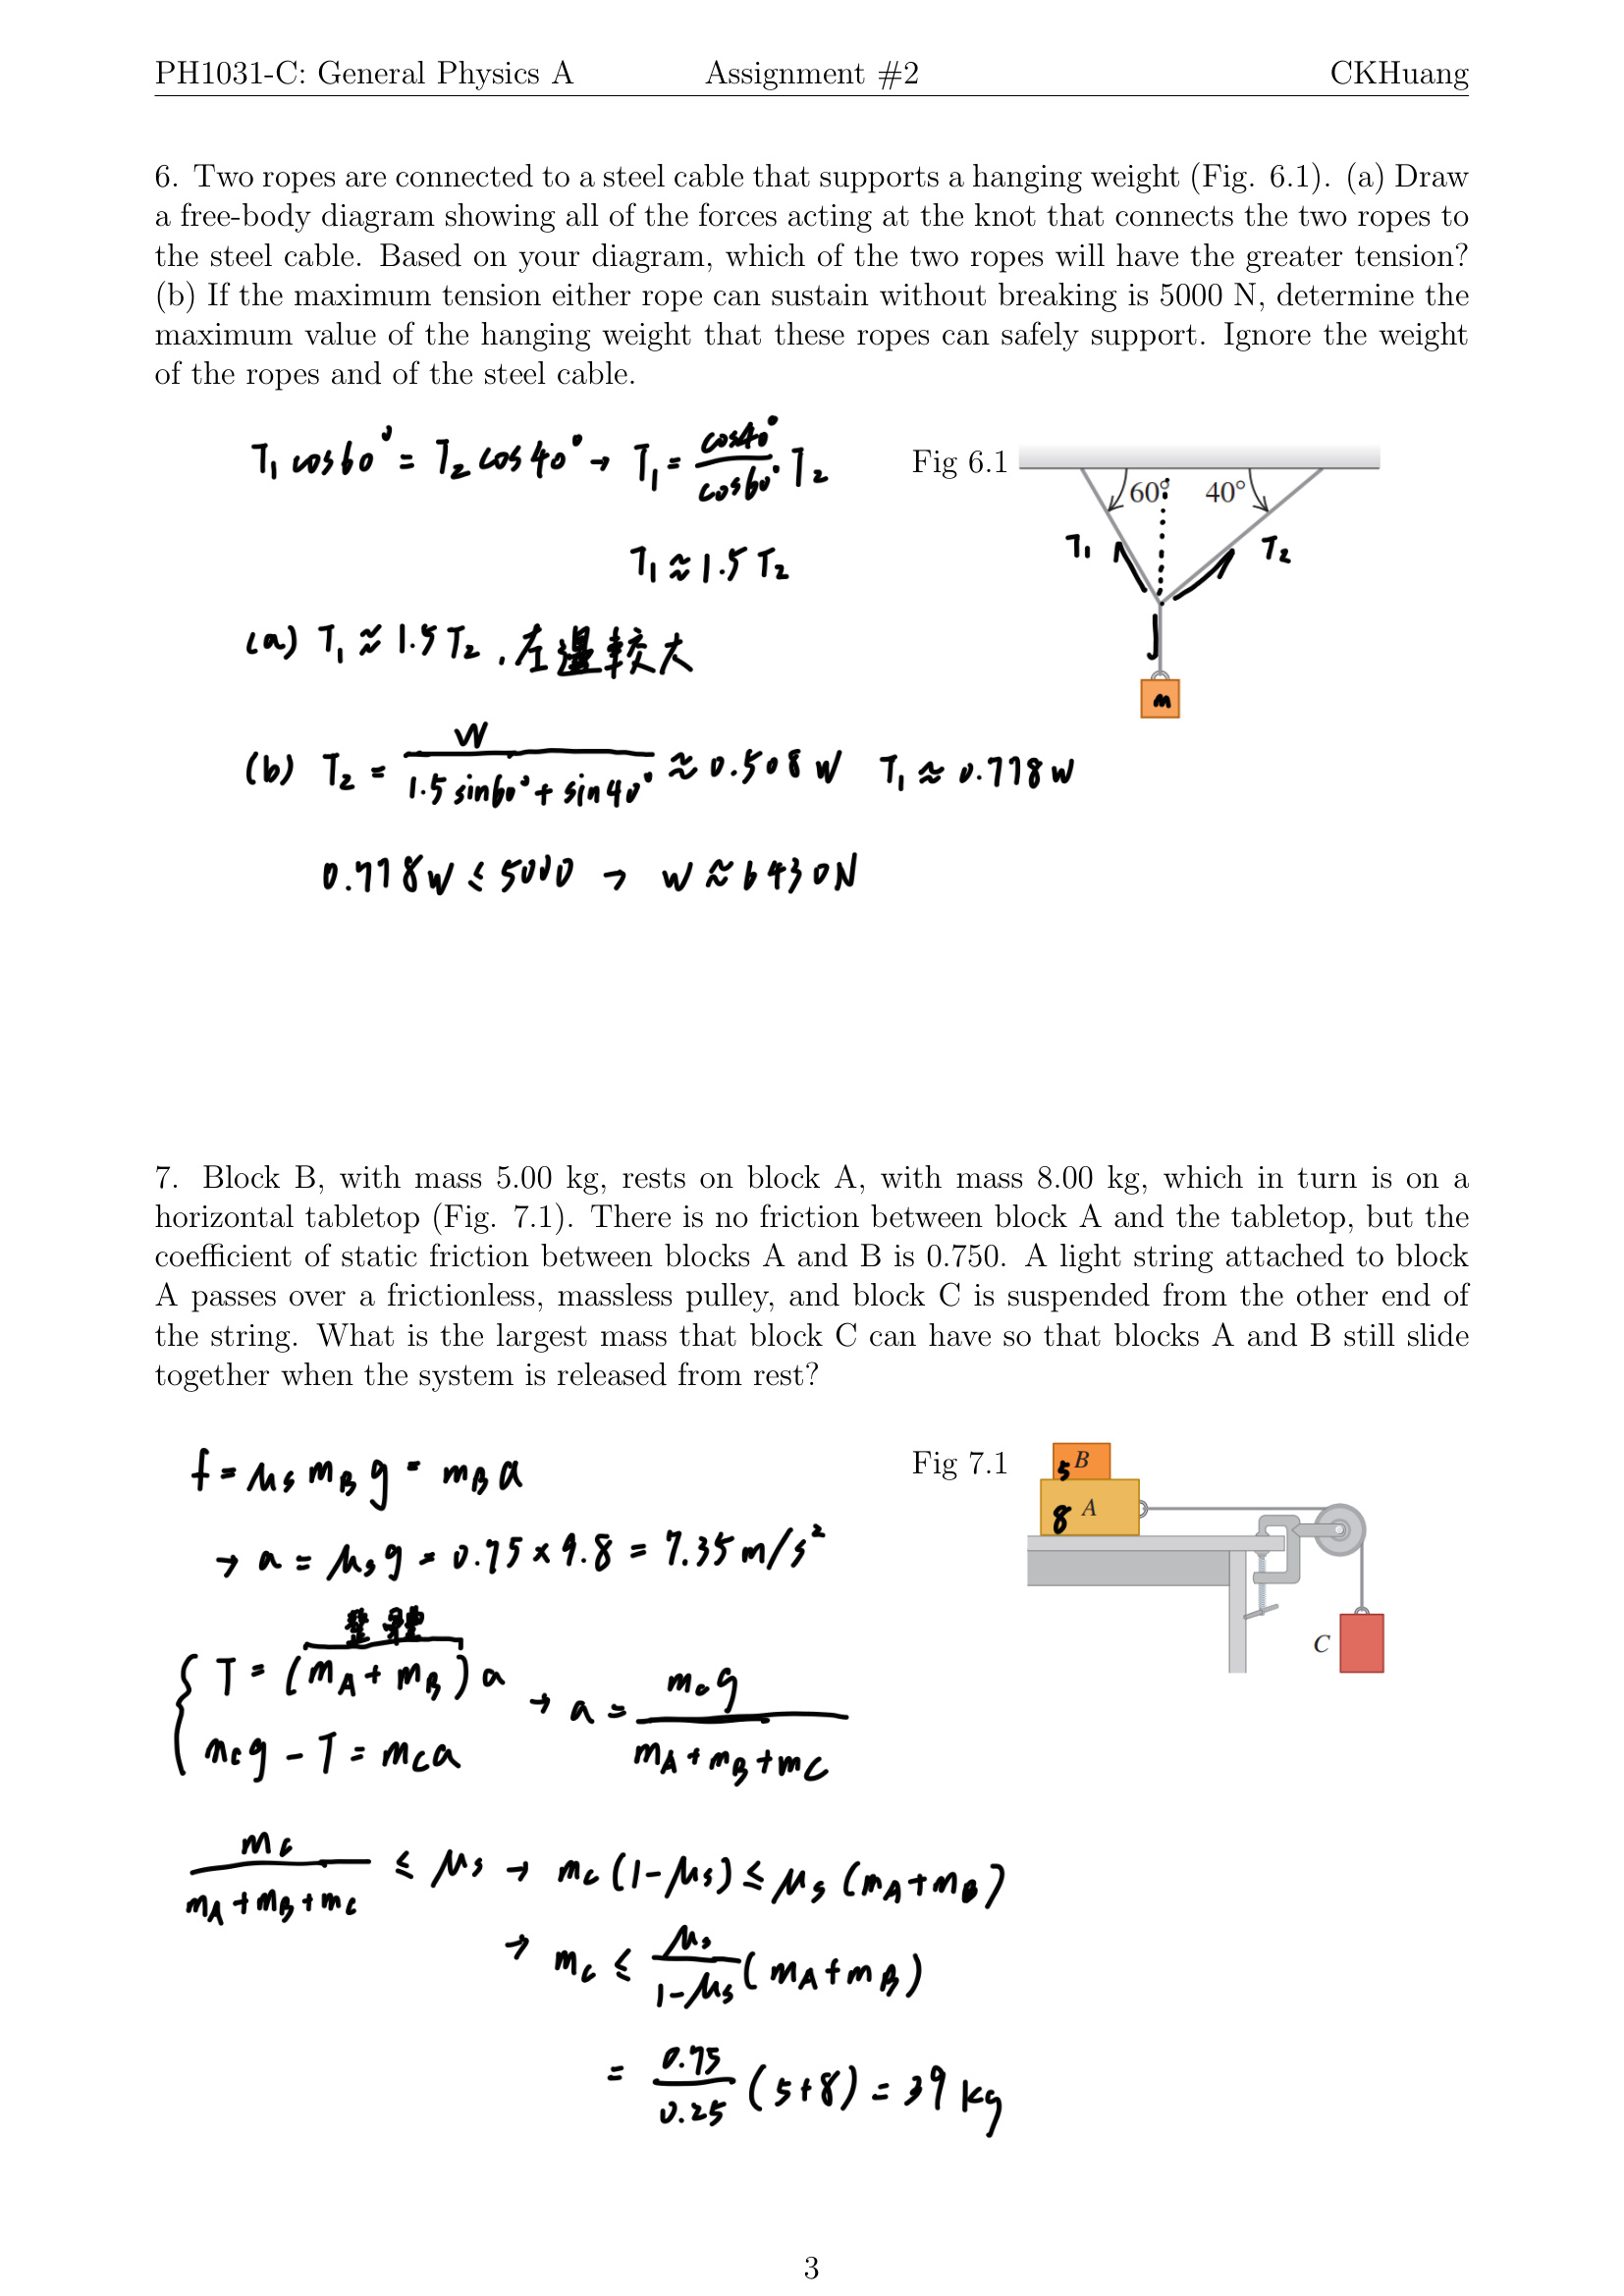 PH1031-C: General Physics A Assignment #2 CKHuang
6. Two ropes are connected to a steel cable that supports a hanging weight (Fig. 6.1). (a) Draw
a free-body diagram showing all of the forces acting at the knot that connects the two ropes to
the steel cable. Based on your diagram, which of the two ropes will have the greater tension?
(b) If the maximum tension either rope can sustain without breaking is 5000 N, determine the
maximum value of the hanging weight that these ropes can safely support. Ignore the weight
of the ropes and of the steel cable.
T₁ cos60° = T₂ cos40° → T₁ = cos40°/cos60° T₂
T₁ ≈ 1.5 T₂
Fig 6.1
60° 40°
T₁ T₂
m
(a) T₁ ≈ 1.5 T₂ , 左邊較大
(b) T₂ = W / (1.5 sin60° + sin40°) ≈ 0.508 W T₁ ≈ 0.778 W
0.778 W ≤ 5000 → W ≈ 6430N
7. Block B, with mass 5.00 kg, rests on block A, with mass 8.00 kg, which in turn is on a
horizontal tabletop (Fig. 7.1). There is no friction between block A and the tabletop, but the
coefficient of static friction between blocks A and B is 0.750. A light string attached to block
A passes over a frictionless, massless pulley, and block C is suspended from the other end of
the string. What is the largest mass that block C can have so that blocks A and B still slide
together when the system is released from rest?
f = μs mB g = mB a
→ a = μs g = 0.75 × 9.8 = 7.35 m/s²
Fig 7.1
5 B
8 A
C
T = (mA + mB) a
mC g - T = mC a
→ a = mC g / (mA + mB + mC)
mC / (mA + mB + mC) ≤ μs → mC (1 - μs) ≤ μs (mA + mB)
→ mC ≤ μs / (1 - μs) (mA + mB)
= 0.75 / 0.25 (5+8) = 39 kg
3